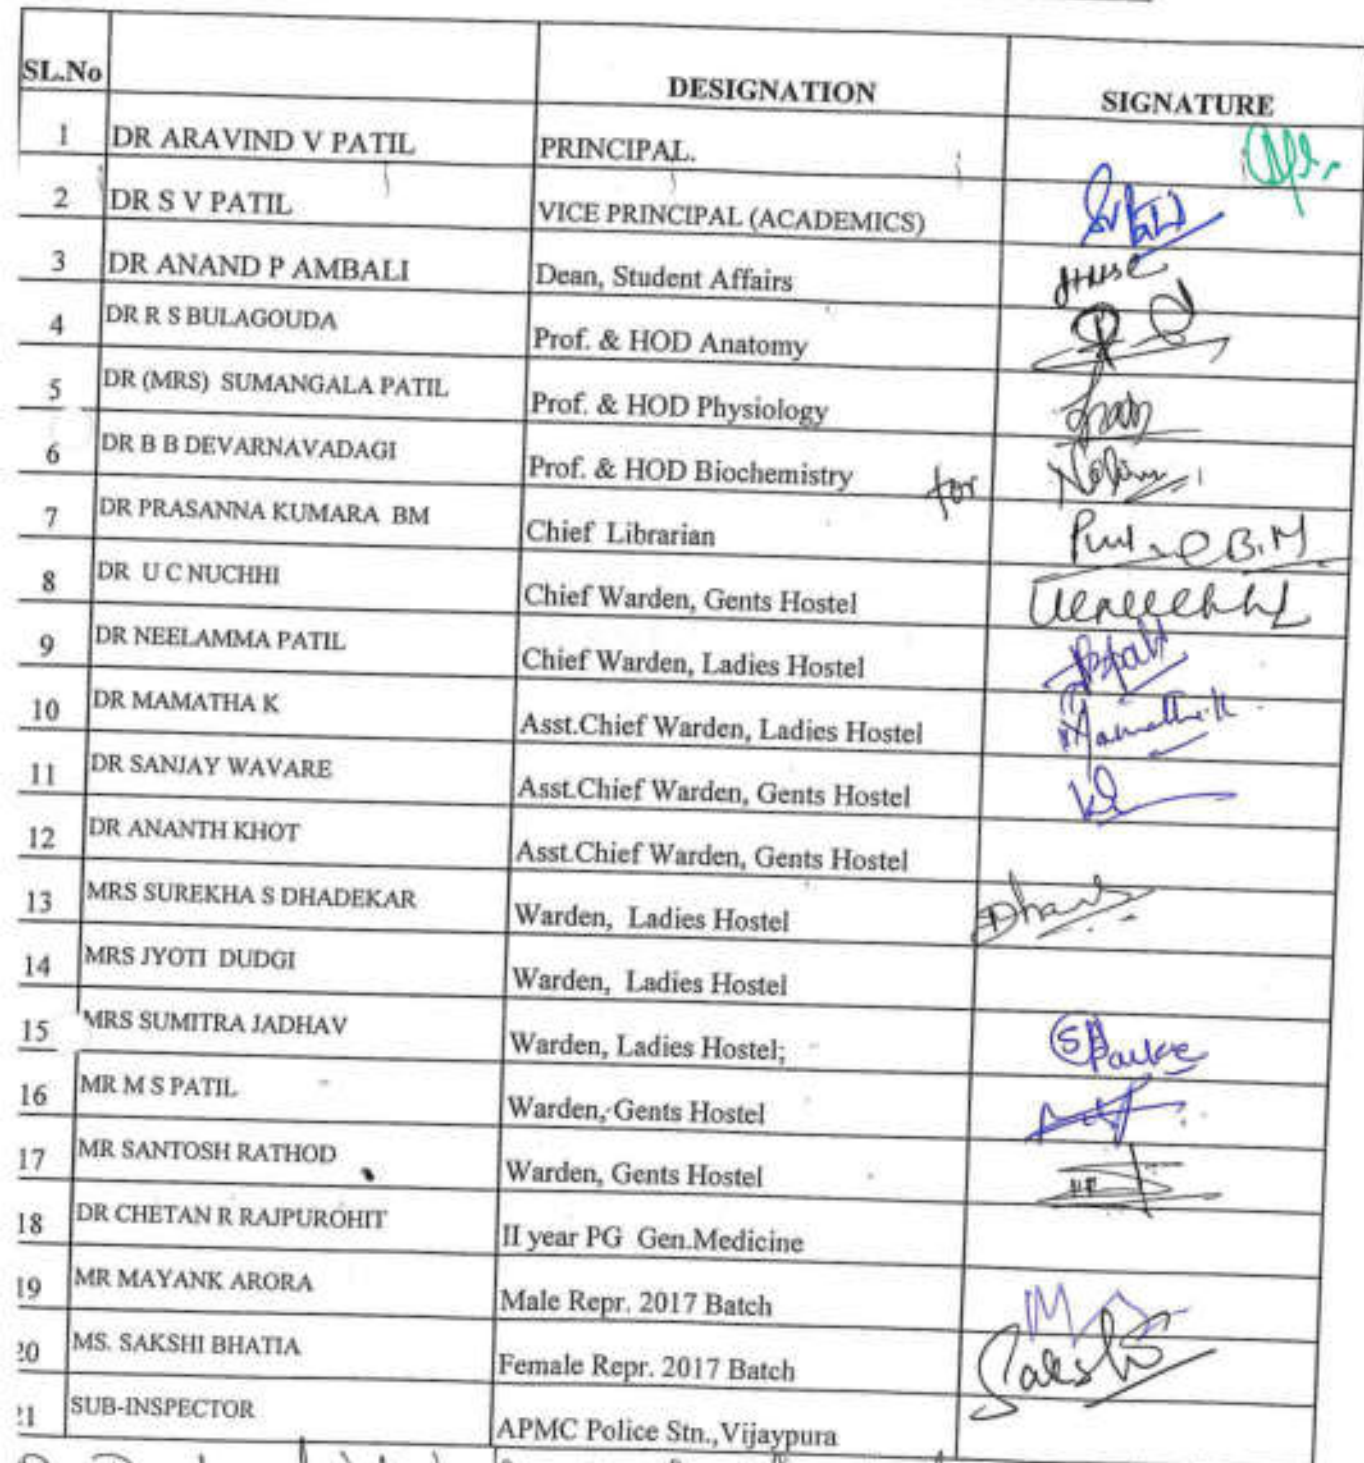 SL.No DESIGNATION SIGNATURE
1 DR ARAVIND V PATIL PRINCIPAL.
2 DR S V PATIL VICE PRINCIPAL (ACADEMICS)
3 DR ANAND P AMBALI Dean, Student Affairs
4 DR R S BULAGOUDA Prof. & HOD Anatomy
5 DR (MRS) SUMANGALA PATIL Prof. & HOD Physiology
6 DR B B DEVARNAVADAGI Prof. & HOD Biochemistry for
7 DR PRASANNA KUMARA BM Chief Librarian B.M
8 DR U C NUCHHI Chief Warden, Gents Hostel
9 DR NEELAMMA PATIL Chief Warden, Ladies Hostel
10 DR MAMATHA K Asst.Chief Warden, Ladies Hostel Mamatha.K
11 DR SANJAY WAVARE Asst.Chief Warden, Gents Hostel
12 DR ANANTH KHOT Asst.Chief Warden, Gents Hostel
13 MRS SUREKHA S DHADEKAR Warden, Ladies Hostel
14 MRS JYOTI DUDGI Warden, Ladies Hostel
15 MRS SUMITRA JADHAV Warden, Ladies Hostel;
16 MR M S PATIL Warden, Gents Hostel
17 MR SANTOSH RATHOD Warden, Gents Hostel
18 DR CHETAN R RAJPUROHIT II year PG Gen.Medicine
19 MR MAYANK ARORA Male Repr. 2017 Batch
20 MS. SAKSHI BHATIA Female Repr. 2017 Batch Sakshi
21 SUB-INSPECTOR APMC Police Stn.,Vijaypura